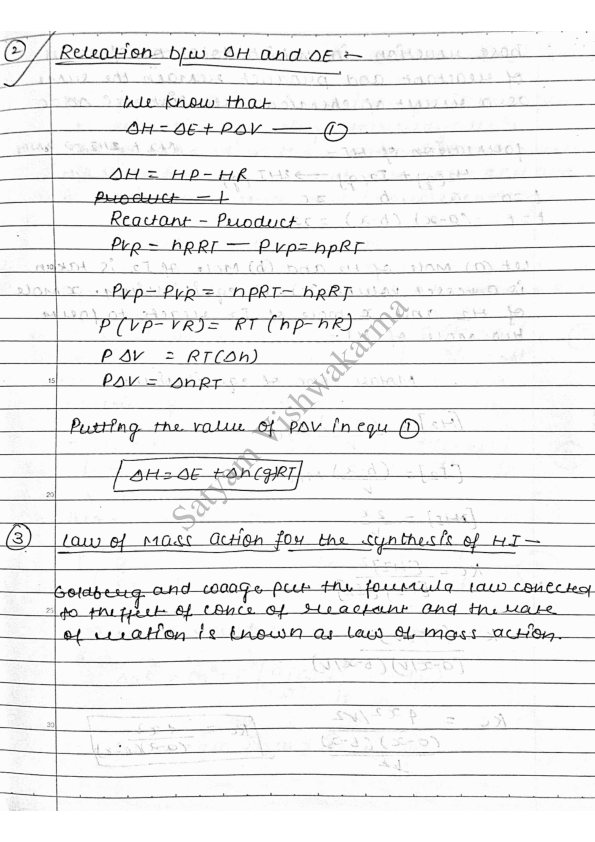 ② Releation b/w ΔH and ΔE :-
We know that
ΔH = ΔE + PΔV — ①
ΔH = HP - HR
Product - 1
Reactant - Product
PVR = nRRT — PVP = nPRT
PVP - PVR = nPRT - nRRT
P (VP - VR) = RT (nP - nR)
P ΔV = RT(Δn)
15
PΔV = ΔnRT
Putting the value of PΔV in equ ①
ΔH = ΔE + Δn(g)RT
20
Satyam Vishwakarma
③ Law of Mass action for the synthesis of HI -
Goldberg and waage put the formula law conected
25
to theffect of conce of reactant and the rate
of reation is known as law of mass action.
30